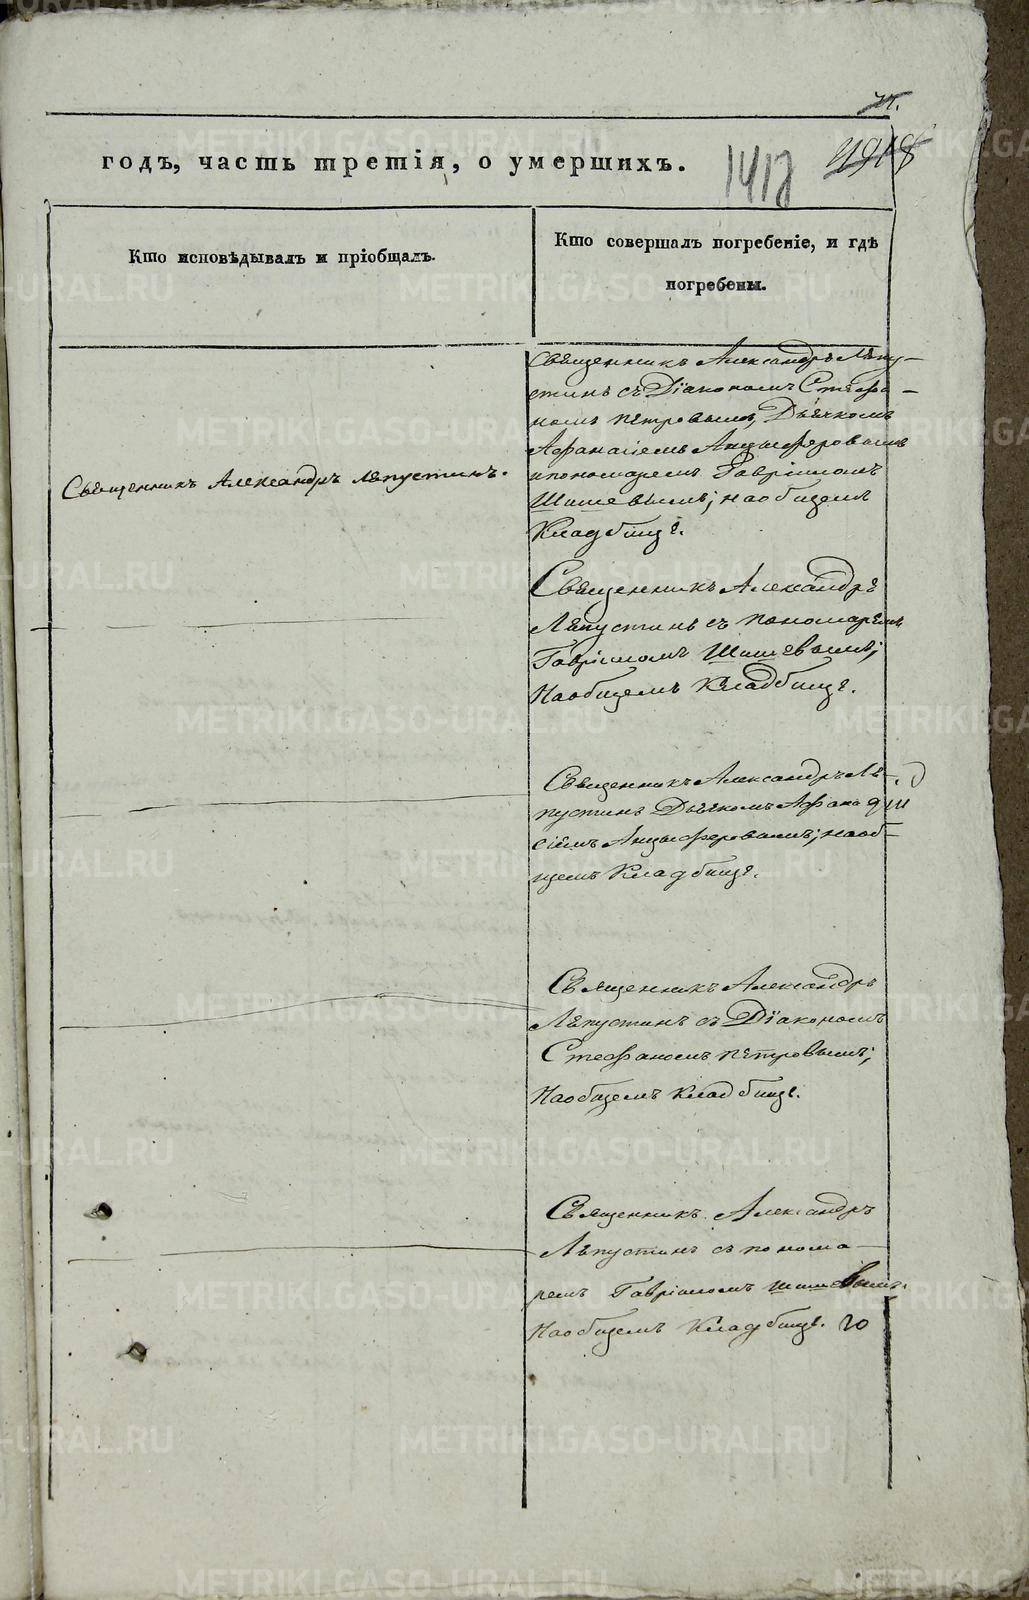 годъ, часть третія, о умершихъ.
1418
Кто исповѣдывалъ и пріобщалъ.
Кто совершалъ погребеніе, и гдѣ
погребены.
Священникъ Александръ Лѣпустинъ.
Священникъ Александръ Лѣпу-
стинъ съ Діакономъ Стефа-
номъ Петровымъ, Дьячкомъ
Афанасіемъ Анцыферовымъ
и пономаремъ Гавріиломъ
Шишевымъ; на общемъ
Кладбище.
Священникъ Александръ
Лѣпустинъ съ пономаремъ
Гавріиломъ Шишевымъ;
На общемъ Кладбище.
Священникъ Александръ Лѣ-
пустинъ Дьячкомъ Афана
сіемъ Анцыферовымъ; на об-
щемъ Кладбище.
Священникъ Александръ
Лѣпустинъ съ Діакономъ
Стефаномъ Петровымъ;
На общемъ Кладбище.
Священникъ Александръ
Лѣпустинъ съ понома-
ремъ Гавріиломъ Шишевымъ.
На общемъ Кладбище.
METRIKI.GASO-URAL.RU